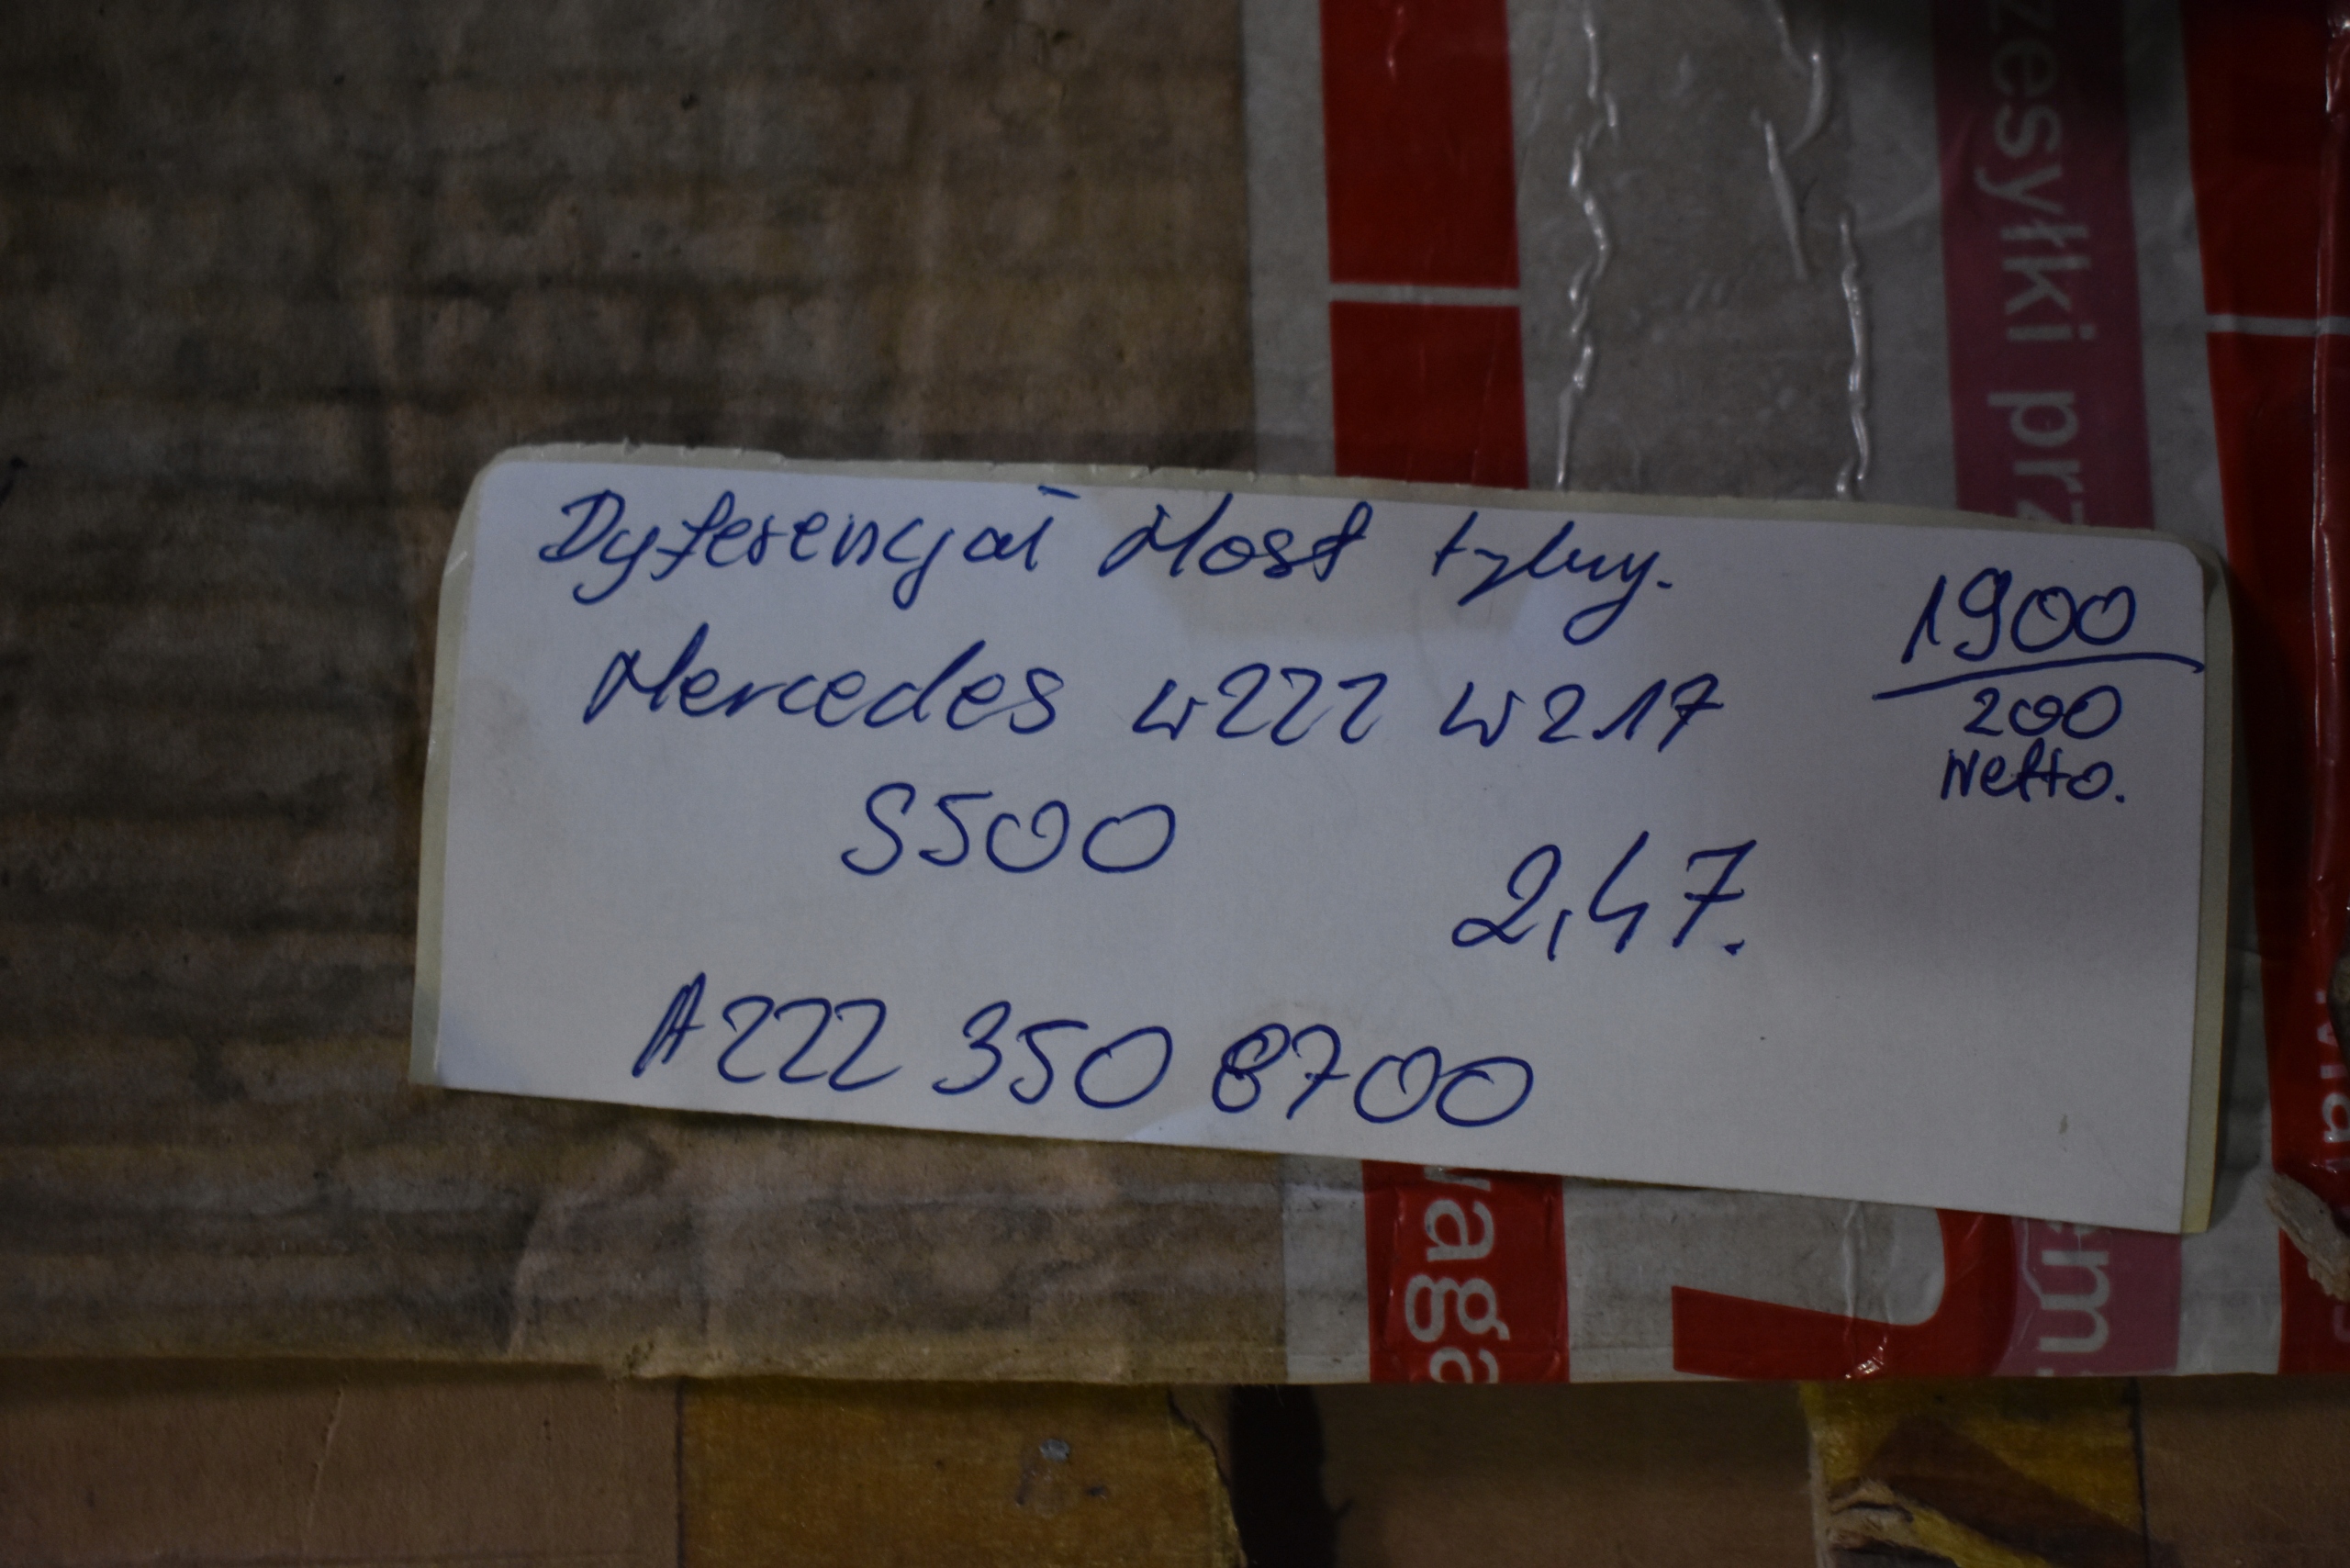 Dyferencjał Most tylny.
Mercedes W222 W217
S500
2,47.
A222 350 8700
1900
200
Netto.
zesyłki prz
waga
em.